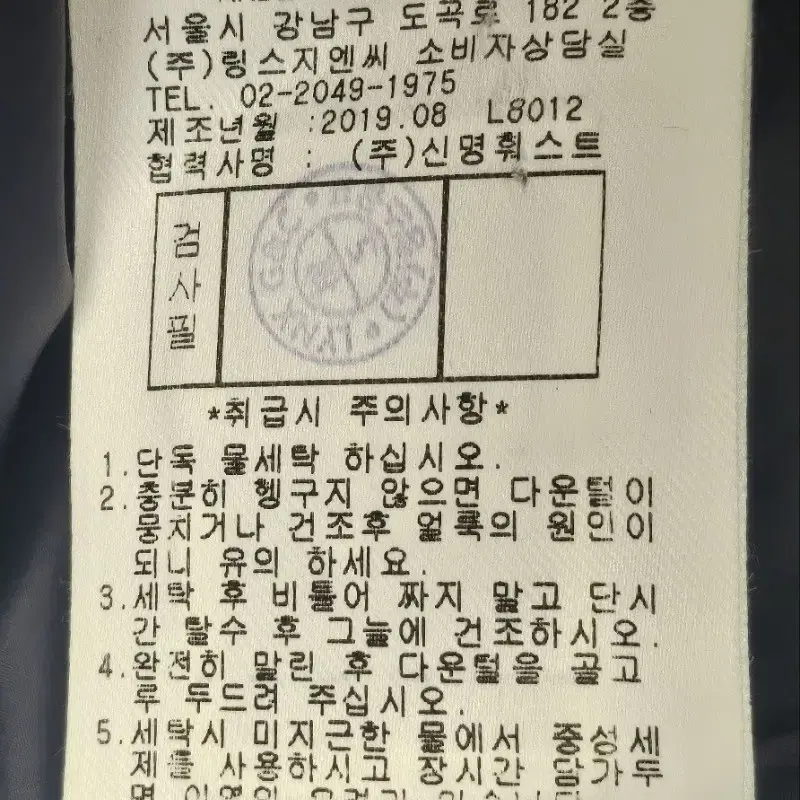 서울시 강남구 도곡로 182 2층
(주)링스지엔씨 소비자상담실
TEL. 02-2049-1975
제조년월 :2019.08 L8012
협력사명 : (주)신명훠스트
검사필
LYNX G&C
*취급시 주의사항*
1.단독 물세탁 하십시오.
2.충분히 헹구지 않으면 다운털이
뭉치거나 건조후 얼룩의 원인이
되니 유의 하세요.
3.세탁 후 비틀어 짜지 말고 단시
간 탈수 후 그늘에 건조하시오.
4.완전히 말린 후 다운털을 골고
루 두드려 주십시오.
5.세탁시 미지근한 물에서 중성세
제를 사용하시고 장시간 담가두